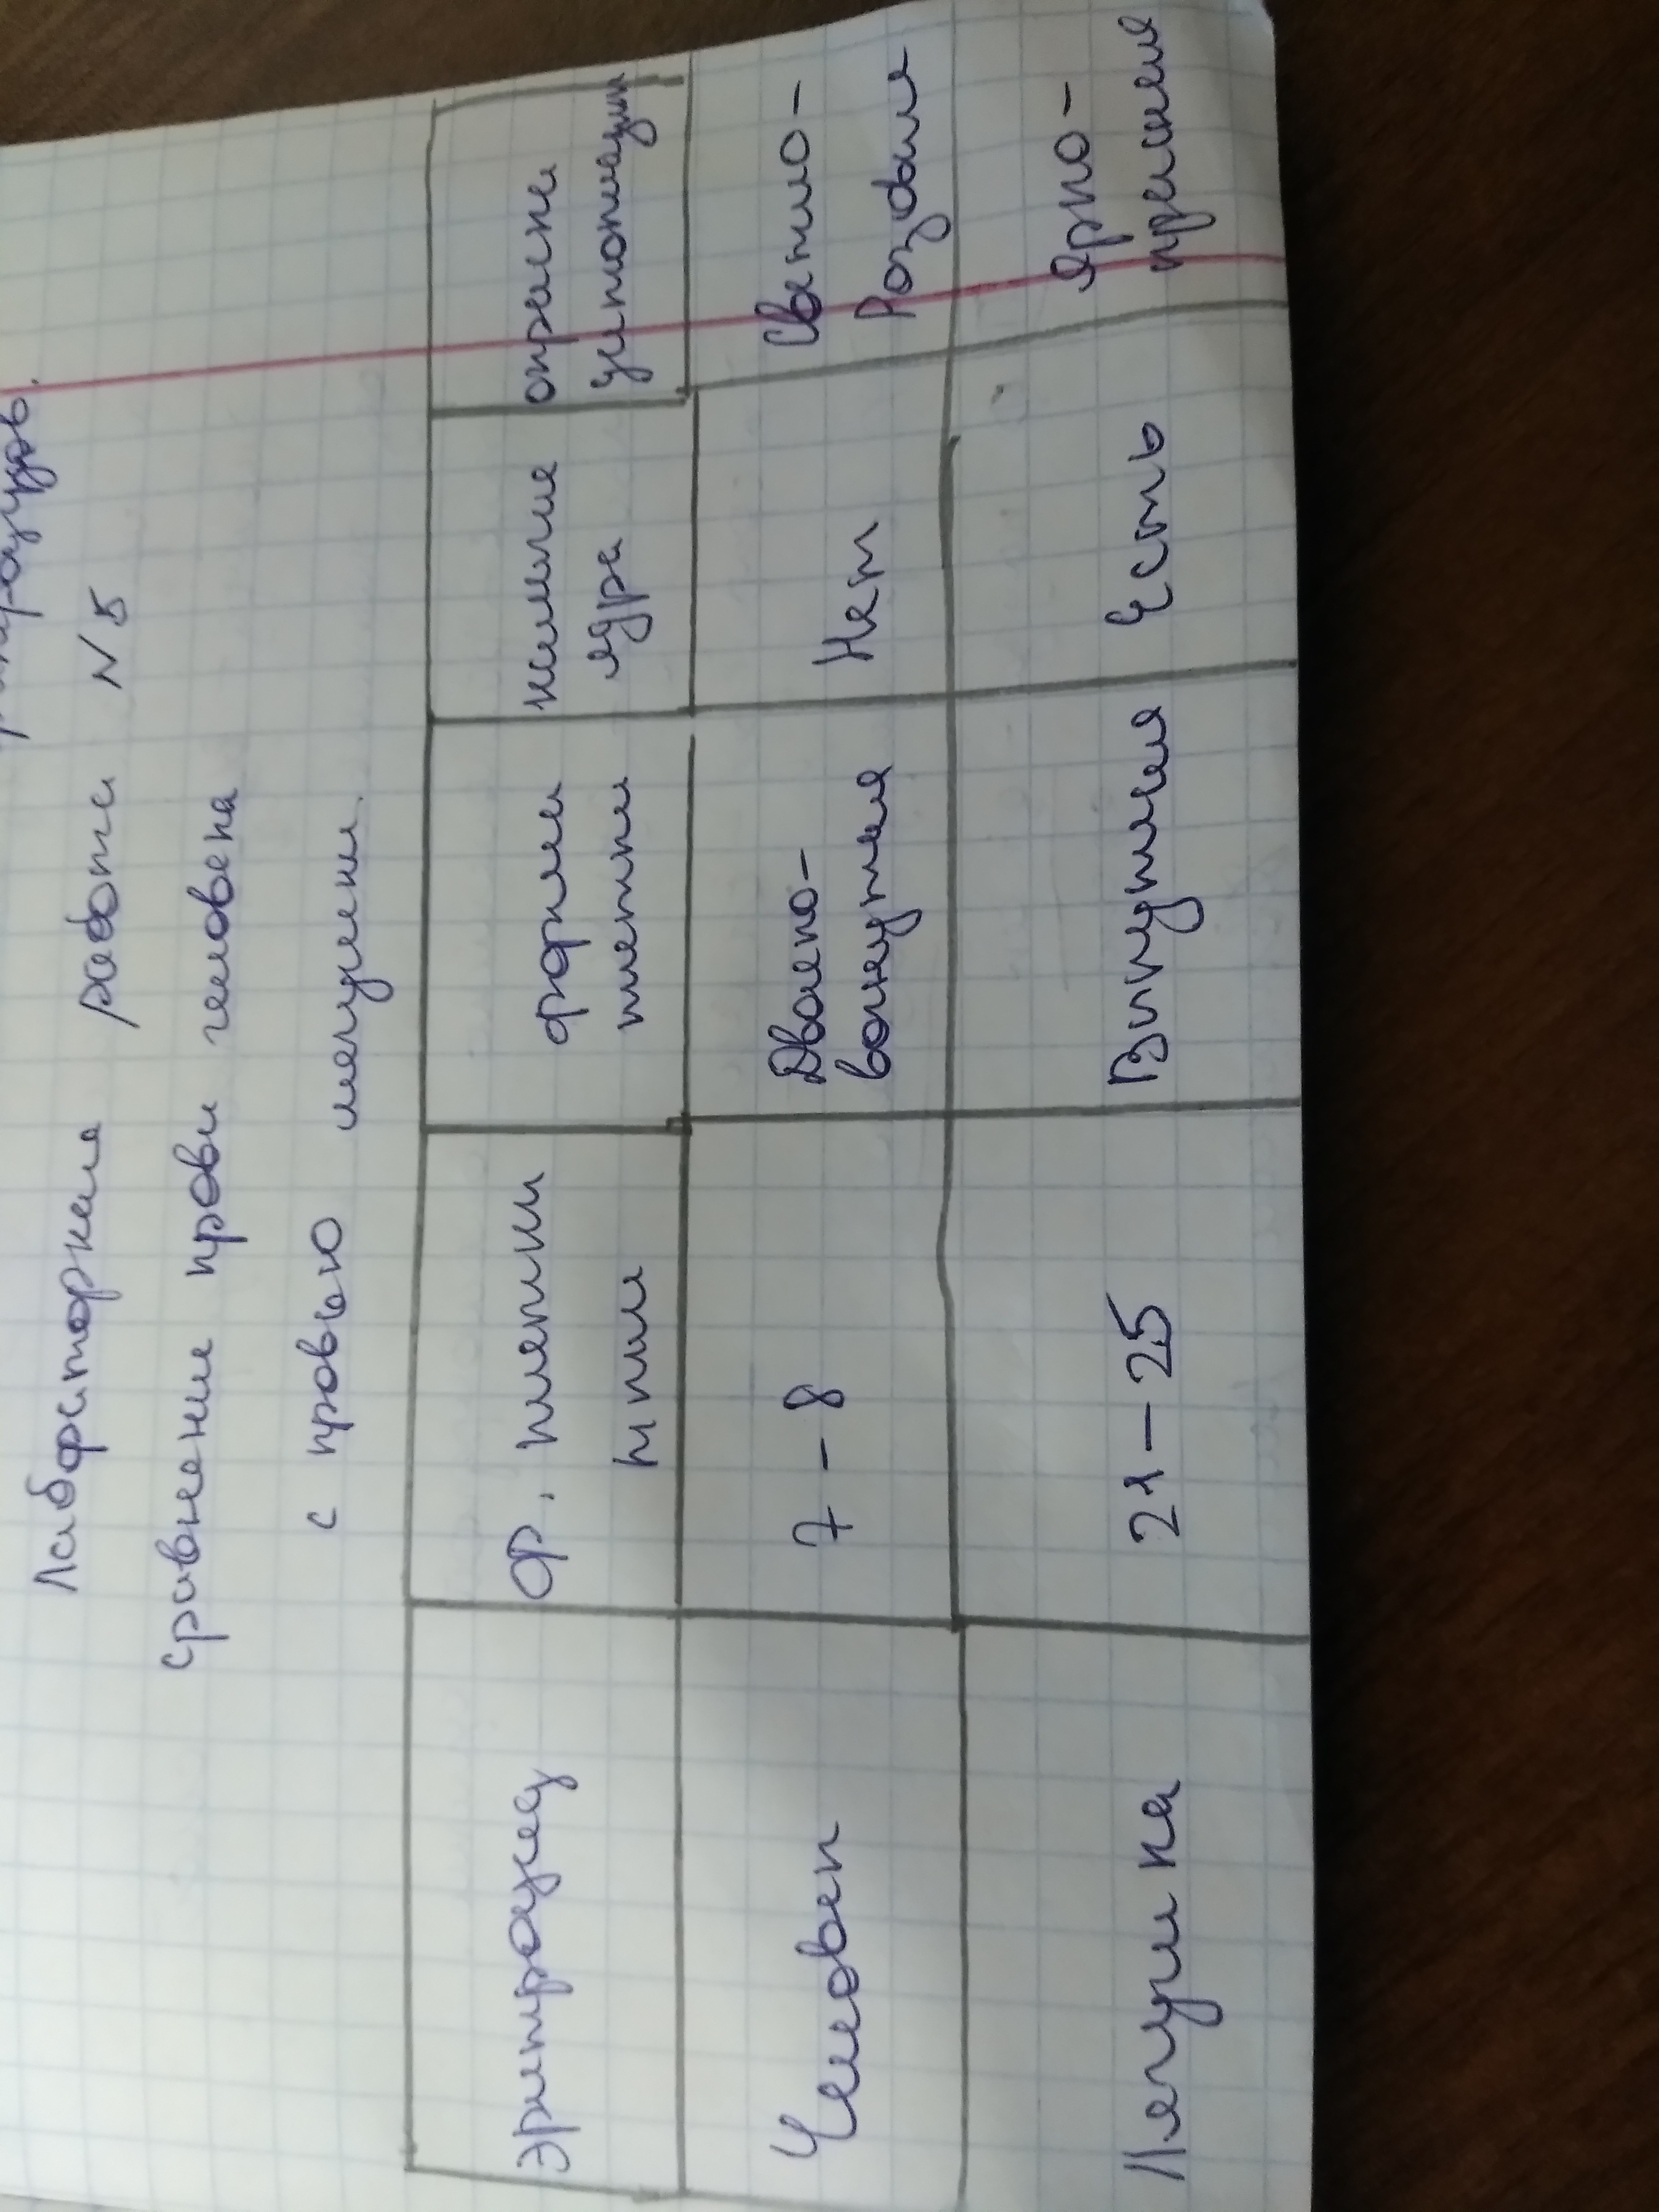 Лабораторная работа №5
Сравнение крови человека
с кровью лягушки.
Эритроцит
ср. клетки
мкм
форма
клетки
наличие
ядра
окраска
цитоплазмы
Человек
7-8
Двояко-
вогнутая
Нет
Светло-
Розовая
Лягушка
21-25
Выпуклая
Есть
Ярко-
красная